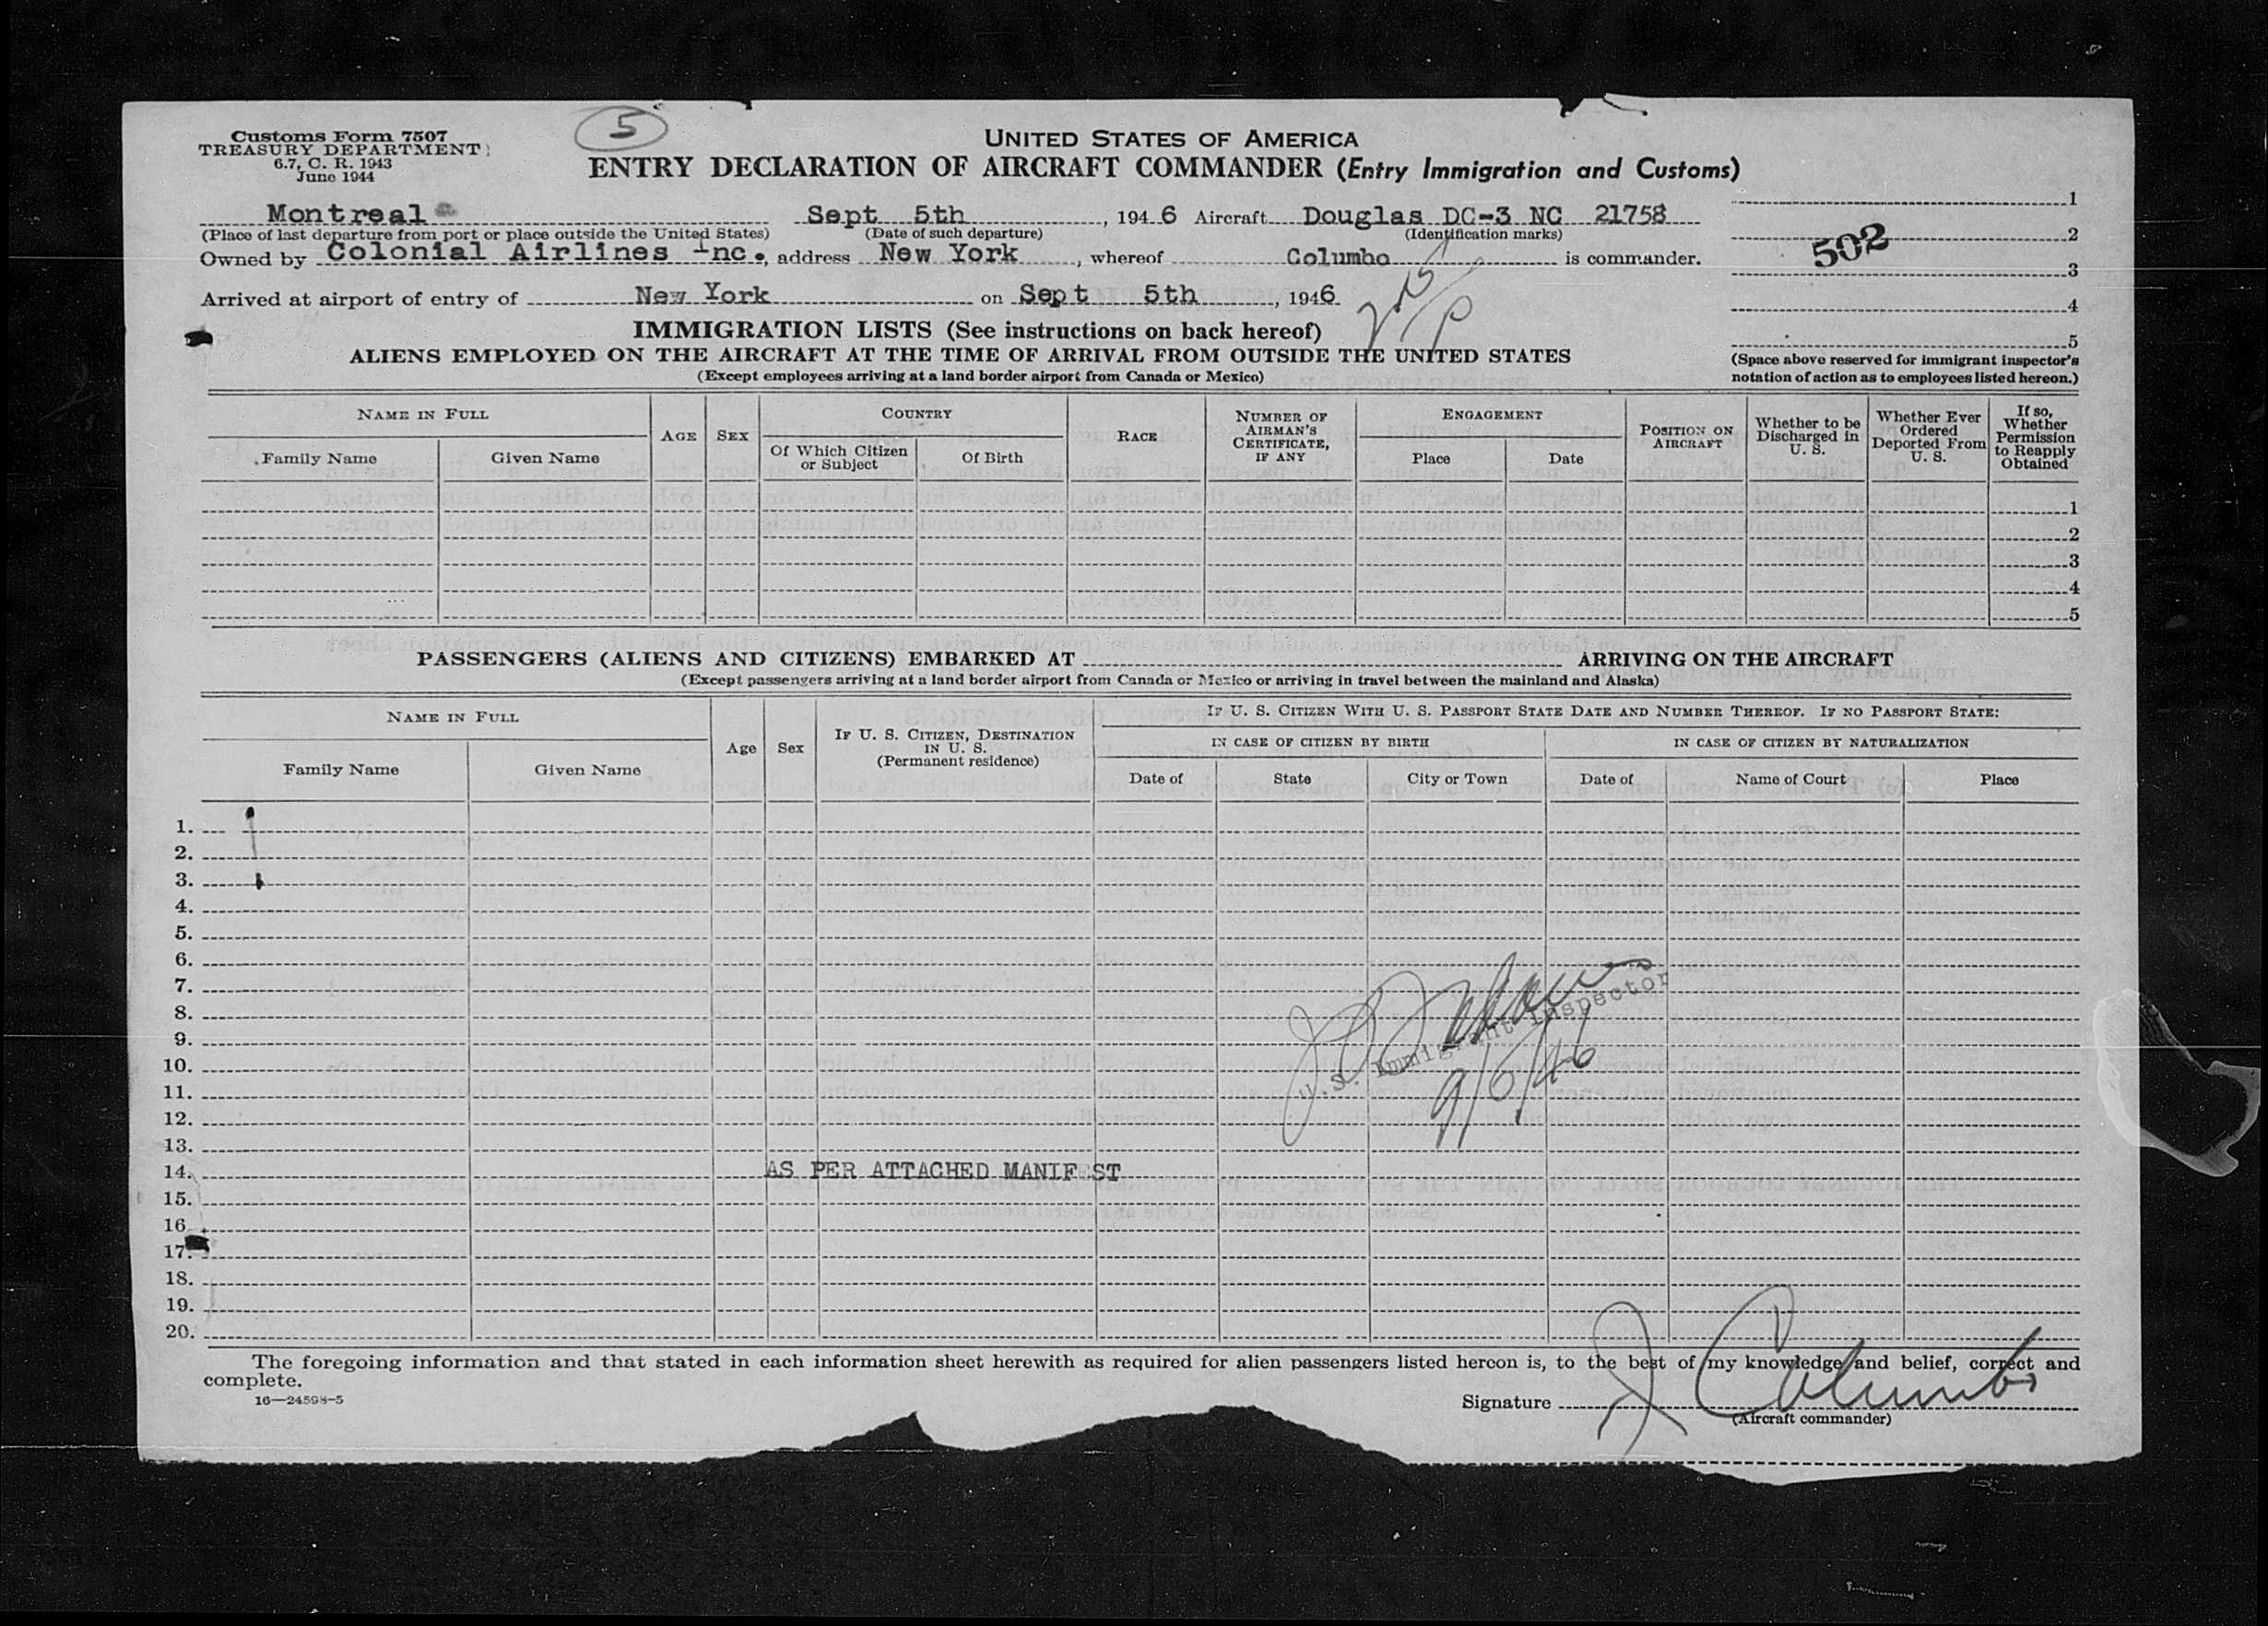 5
Customs Form 7507
TREASURY DEPARTMENT
6.7, C. R. 1943
June 1944
UNITED STATES OF AMERICA
ENTRY DECLARATION OF AIRCRAFT COMMANDER (Entry Immigration and Customs)
Montreal Sept 5th, 1946 Aircraft Douglas DC-3 NC 21758
(Place of last departure from port or place outside the United States) (Date of such departure) (Identification marks)
Owned by Colonial Airlines Inc., address New York, whereof Columbo is commander.
Arrived at airport of entry of New York on Sept 5th, 1946
1
2
502
3
4
5
(Space above reserved for immigrant inspector's
notation of action as to employees listed hereon.)
IMMIGRATION LISTS (See instructions on back hereof)
ALIENS EMPLOYED ON THE AIRCRAFT AT THE TIME OF ARRIVAL FROM OUTSIDE THE UNITED STATES
(Except employees arriving at a land border airport from Canada or Mexico)
NAME IN FULL
Family Name Given Name
AGE
SEX
COUNTRY
Of Which Citizen or Subject
Of Birth
RACE
NUMBER OF AIRMAN'S CERTIFICATE, IF ANY
ENGAGEMENT
Place Date
POSITION ON AIRCRAFT
Whether to be Discharged in U. S.
Whether Ever Ordered Deported From U. S.
If so, Whether Permission to Reapply Obtained
1
2
3
4
5
PASSENGERS (ALIENS AND CITIZENS) EMBARKED AT ARRIVING ON THE AIRCRAFT
(Except passengers arriving at a land border airport from Canada or Mexico or arriving in travel between the mainland and Alaska)
NAME IN FULL
Family Name Given Name
Age
Sex
IF U. S. CITIZEN, DESTINATION IN U. S.
(Permanent residence)
IF U. S. CITIZEN WITH U. S. PASSPORT STATE DATE AND NUMBER THEREOF. IF NO PASSPORT STATE:
IN CASE OF CITIZEN BY BIRTH IN CASE OF CITIZEN BY NATURALIZATION
Date of State City or Town Date of Name of Court Place
1.
2.
3.
4.
5.
6.
7.
8.
9.
10.
11.
12.
13.
14.
15.
16
17.
18.
19.
20.
U.S. Immigrant Inspector
9/5/46
AS PER ATTACHED MANIF ST
The foregoing information and that stated in each information sheet herewith as required for alien passengers listed hereon is, to the best of my knowledge and belief, correct and
complete.
16—24598-5
Signature J Columbo
(Aircraft commander)